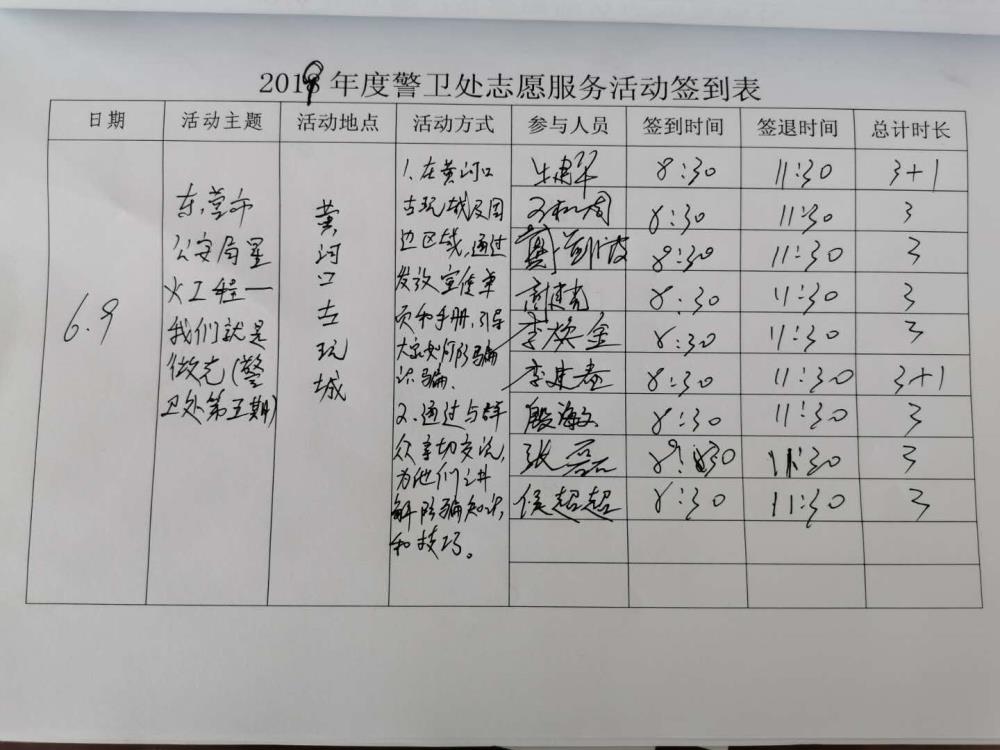 2019年度警卫处志愿服务活动签到表
日期 活动主题 活动地点 活动方式 参与人员 签到时间 签退时间 总计时长
6.9
东营市
公安局星
火工程一
我们就是
做充(警
卫处第五期)
黄河口古玩城
1.在黄河口
古玩城及周
边区域,通过
发放宣传单
页和手册,引导
大家如何防骗
识骗.
2.通过与群
众亲切交流,
为他们讲
解防骗知识,
和技巧。
8:30 11:30 3+1
8:30 11:30 3
8:30 11:30 3
8:30 11:30 3
李焕金 8:30 11:30 3
李建春 8:30 11:30 3+1
殷海文 8:30 11:30 3
张磊 8:30 11:30 3
侯超超 8:30 11:30 3